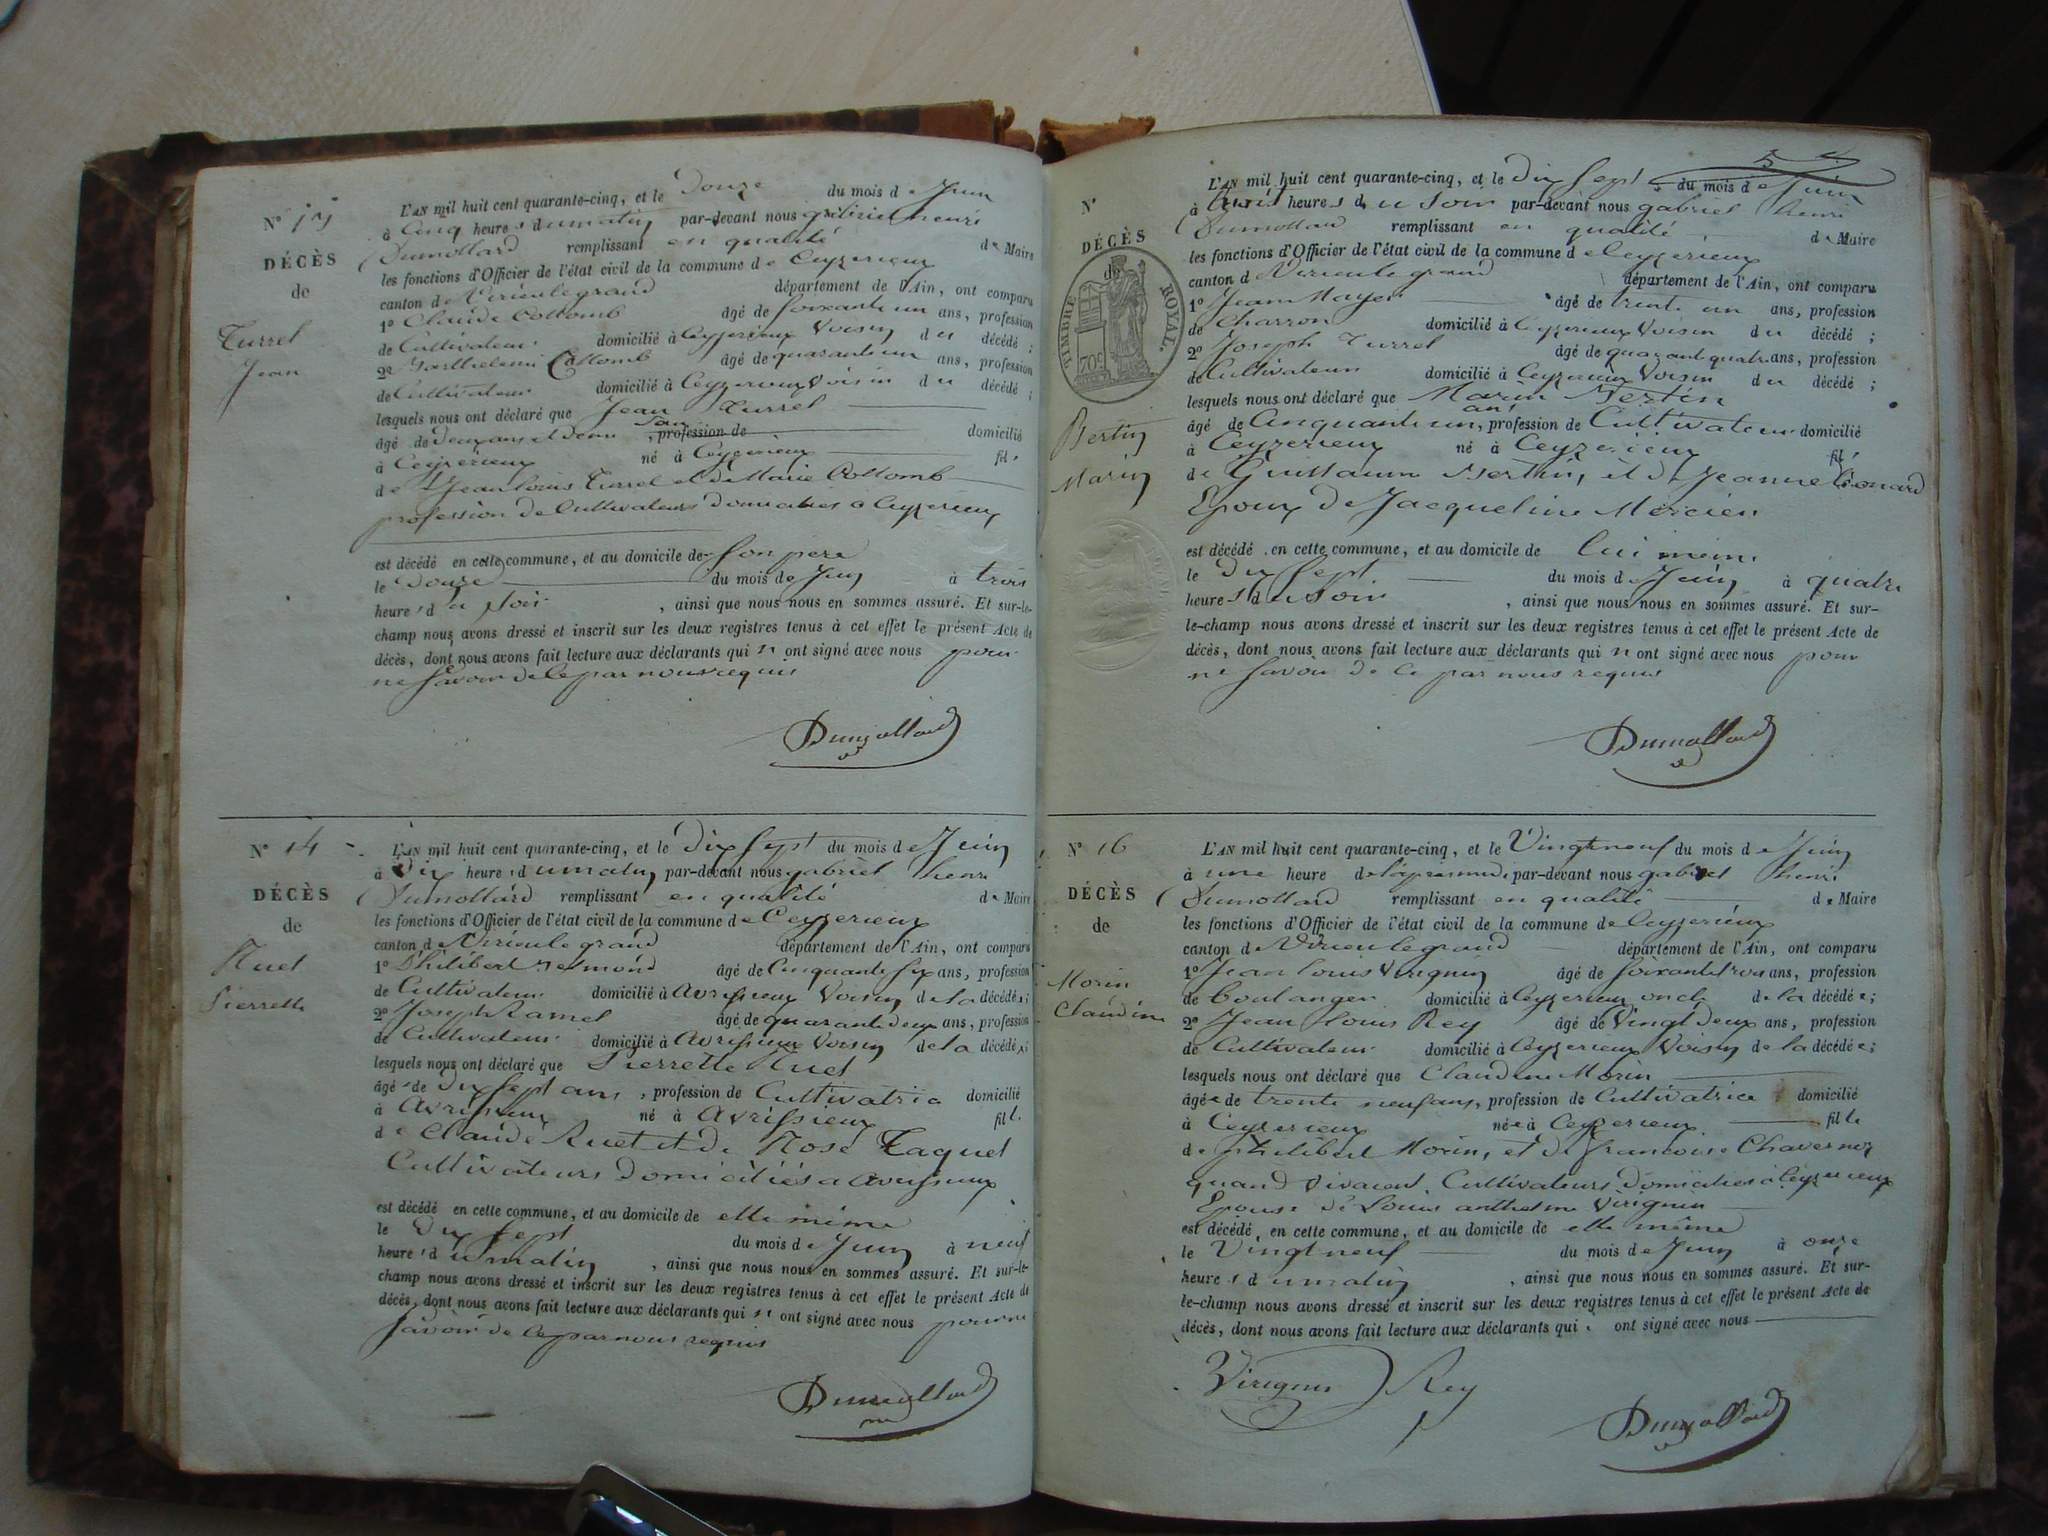 L'AN mil huit cent quarante-cinq, et le Douze du mois de Juin
N° 13
à Cinq heures du matin par-devant nous gabriel henri
Dumollard remplissant en qualité de Maire
DÉCÈS
les fonctions d'Officier de l'état civil de la commune de Ceyzerieux
de
canton de Virieulegrand département de l'Ain, ont comparu
1° Claude Collomb âgé de soixante un ans, profession
Turrel
de Cultivateur domicilié à Ceyzerieux Voisin du décédé ;
Jean
2° Barthelemi Collomb âgé de quarante un ans, profession
de Cultivateur domicilié à Ceyzerieux Voisin du décédé ;
lesquels nous ont déclaré que Jean Turrel
âgé de deux ans et demi , profession de domicilié
à Ceyzerieux né à Ceyzerieux fils
de Jean louis Turrel et de Marie Collomb
profession de Cultivateurs domiciliés a Ceyzerieux
est décédé en cette commune, et au domicile de son pere
le douze du mois de Juin à trois
heures du soir , ainsi que nous nous en sommes assuré. Et sur-le-
champ nous avons dressé et inscrit sur les deux registres tenus à cet effet le présent Acte de
décès, dont nous avons fait lecture aux déclarants qui n ont signé avec nous pour
ne savoir de ce par nous requis
Dumollard
N° 14
L'AN mil huit cent quarante-cinq, et le Dix sept du mois de Juin
à Dix heures du matin par-devant nous gabriel henri
DÉCÈS
Dumollard remplissant en qualité de Maire
de
les fonctions d'Officier de l'état civil de la commune de Ceyzerieux
canton de Virieulegrand département de l'Ain, ont comparu
Ruet
1° Philibert Reymond âgé de Cinquante six ans, profession
Pierrette
de Cultivateur domicilié à Avrissieux Voisin de la décédée ;
2° Joseph Ramel âgé de quarante deux ans, profession
de Cultivateur domicilié à Avrissieux Voisin de la décédée ;
lesquels nous ont déclaré que Pierrette Ruet
âgé de dix sept ans , profession de Cultivatrice domicilié
à Avrissieux né à Avrissieux fille
de Claude Ruet et de Rose Taquet
Cultivateurs Domiciliés a Avrissieux
est décédé en cette commune, et au domicile de elle même
le Dix sept du mois de Juin à neuf
heures du matin , ainsi que nous nous en sommes assuré. Et sur-le-
champ nous avons dressé et inscrit sur les deux registres tenus à cet effet le présent Acte de
décès, dont nous avons fait lecture aux déclarants qui n ont signé avec nous pour ne
savoir de ce par nous requis
Dumollard
L'AN mil huit cent quarante-cinq, et le Dix sept du mois de Juin
N°
à trois heures du soir par-devant nous gabriel henri
DÉCÈS
Dumollard remplissant en qualité de Maire
de
les fonctions d'Officier de l'état civil de la commune de Ceyzerieux
TIMBRE ROYAL.
70c
canton de Virieulegrand département de l'Ain, ont comparu
1° Jean Mayer âgé de trente un ans, profession
de Charron domicilié à Ceyzerieux Voisin du décédé ;
2° Joseph Turrel âgé de quarante quatre ans, profession
de Cultivateur domicilié à Ceyzerieux Voisin du décédé ;
lesquels nous ont déclaré que Marin Bertin
Bertin
Marin
âgé de Cinquante un ans, profession de Cultivateur domicilié
à Ceyzerieux né à Ceyzerieux fils
de Guillaume Bertin, et de Jeanne Leonard
Epoux de Jacqueline Mercier
est décédé en cette commune, et au domicile de lui même
le Dix sept du mois de Juin à quatre
heures du soir , ainsi que nous nous en sommes assuré. Et sur-
le-champ nous avons dressé et inscrit sur les deux registres tenus à cet effet le présent Acte de
décès, dont nous avons fait lecture aux déclarants qui n ont signé avec nous pour
ne savoir de ce par nous requis
Dumollard
N° 16
L'AN mil huit cent quarante-cinq, et le Vingt neuf du mois de Juin
à une heure par-devant nous gabriel henri
DÉCÈS
Dumollard remplissant en qualité de Maire
de
les fonctions d'Officier de l'état civil de la commune de Ceyzerieux
canton de Virieulegrand département de l'Ain, ont comparu
Morin
Claudine
1° Jean louis Virignin âgé de soixante trois ans, profession
de boulanger domicilié à Ceyzerieux oncle de la décédée ;
2° Jean louis Rey âgé de Vingt deux ans, profession
de Cultivateur domicilié à Ceyzerieux Voisin de la décédée ;
lesquels nous ont déclaré que Claudine Morin
âgée de trente neuf ans, profession de Cultivatrice domicilié
à Ceyzerieux née à Ceyzerieux fille
de philibert Morin, et de francoise
quand Vivaient Cultivateurs Domiciliés à Ceyzerieux
Epouse de Louis anthelme Virignin
est décédé en cette commune, et au domicile de elle même
le Vingt neuf du mois de Juin à onze
heures du matin , ainsi que nous nous en sommes assuré. Et sur-
le-champ nous avons dressé et inscrit sur les deux registres tenus à cet effet le présent Acte de
décès, dont nous avons fait lecture aux déclarants qui ont signé avec nous
Virignin Rey
Dumollard